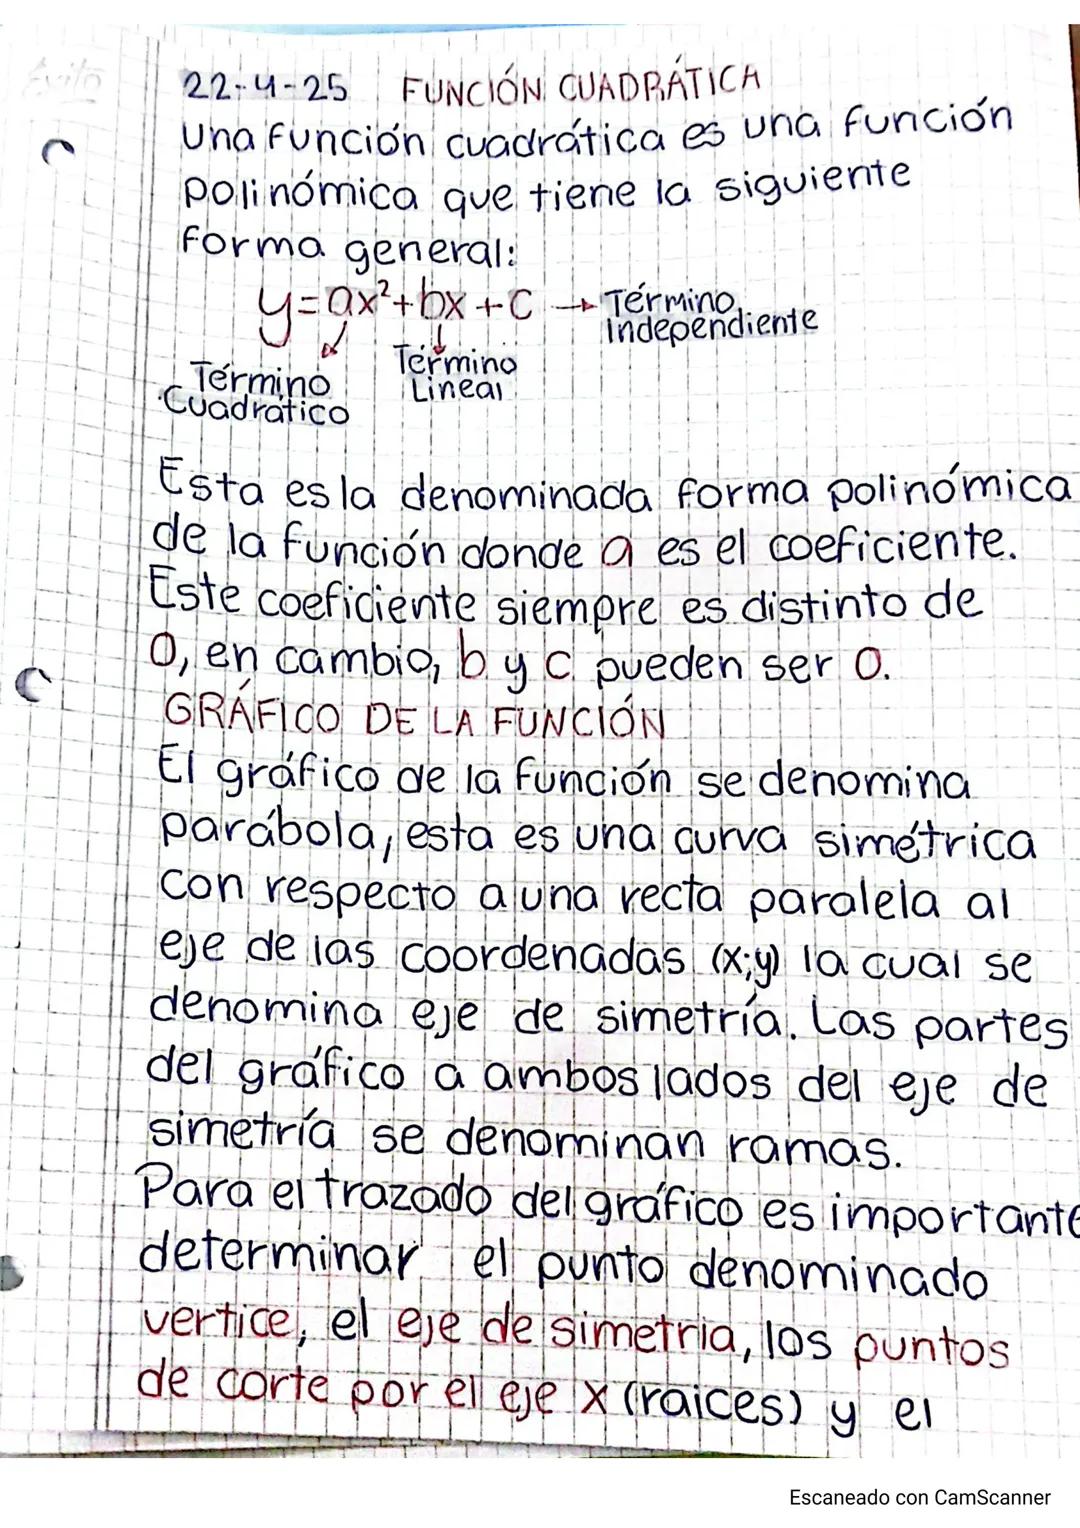 22-4-25 FUNCIÓN CUADRÁTICA
Una función cuadrática es una función
polinómica que tiene la siguiente
forma general:
y=ax²+bx+c → Término
Independiente
Término
Lineal
Término
Cuadrático
Esta es la denominada forma polinómica
de la función donde a es el coeficiente.
Este coeficiente siempre es distinto de
0, en cambio, b y c pueden ser 0.
GRÁFICO DE LA FUNCIÓN
El gráfico de la función se denomina
parábola, esta es una curva simétrica
con respecto a una recta paralela al
eje de las coordenadas (x;y) la cual se
denomina eje de simetría. Las partes
del gráfico a ambos lados del eje de
simetría se denominan ramas.
Para el trazado del gráfico es importante
determinar el punto denominado
vertice, el eje de simetria, los puntos
de corte por el eje x (raices) y el
Escaneado con CamScanner